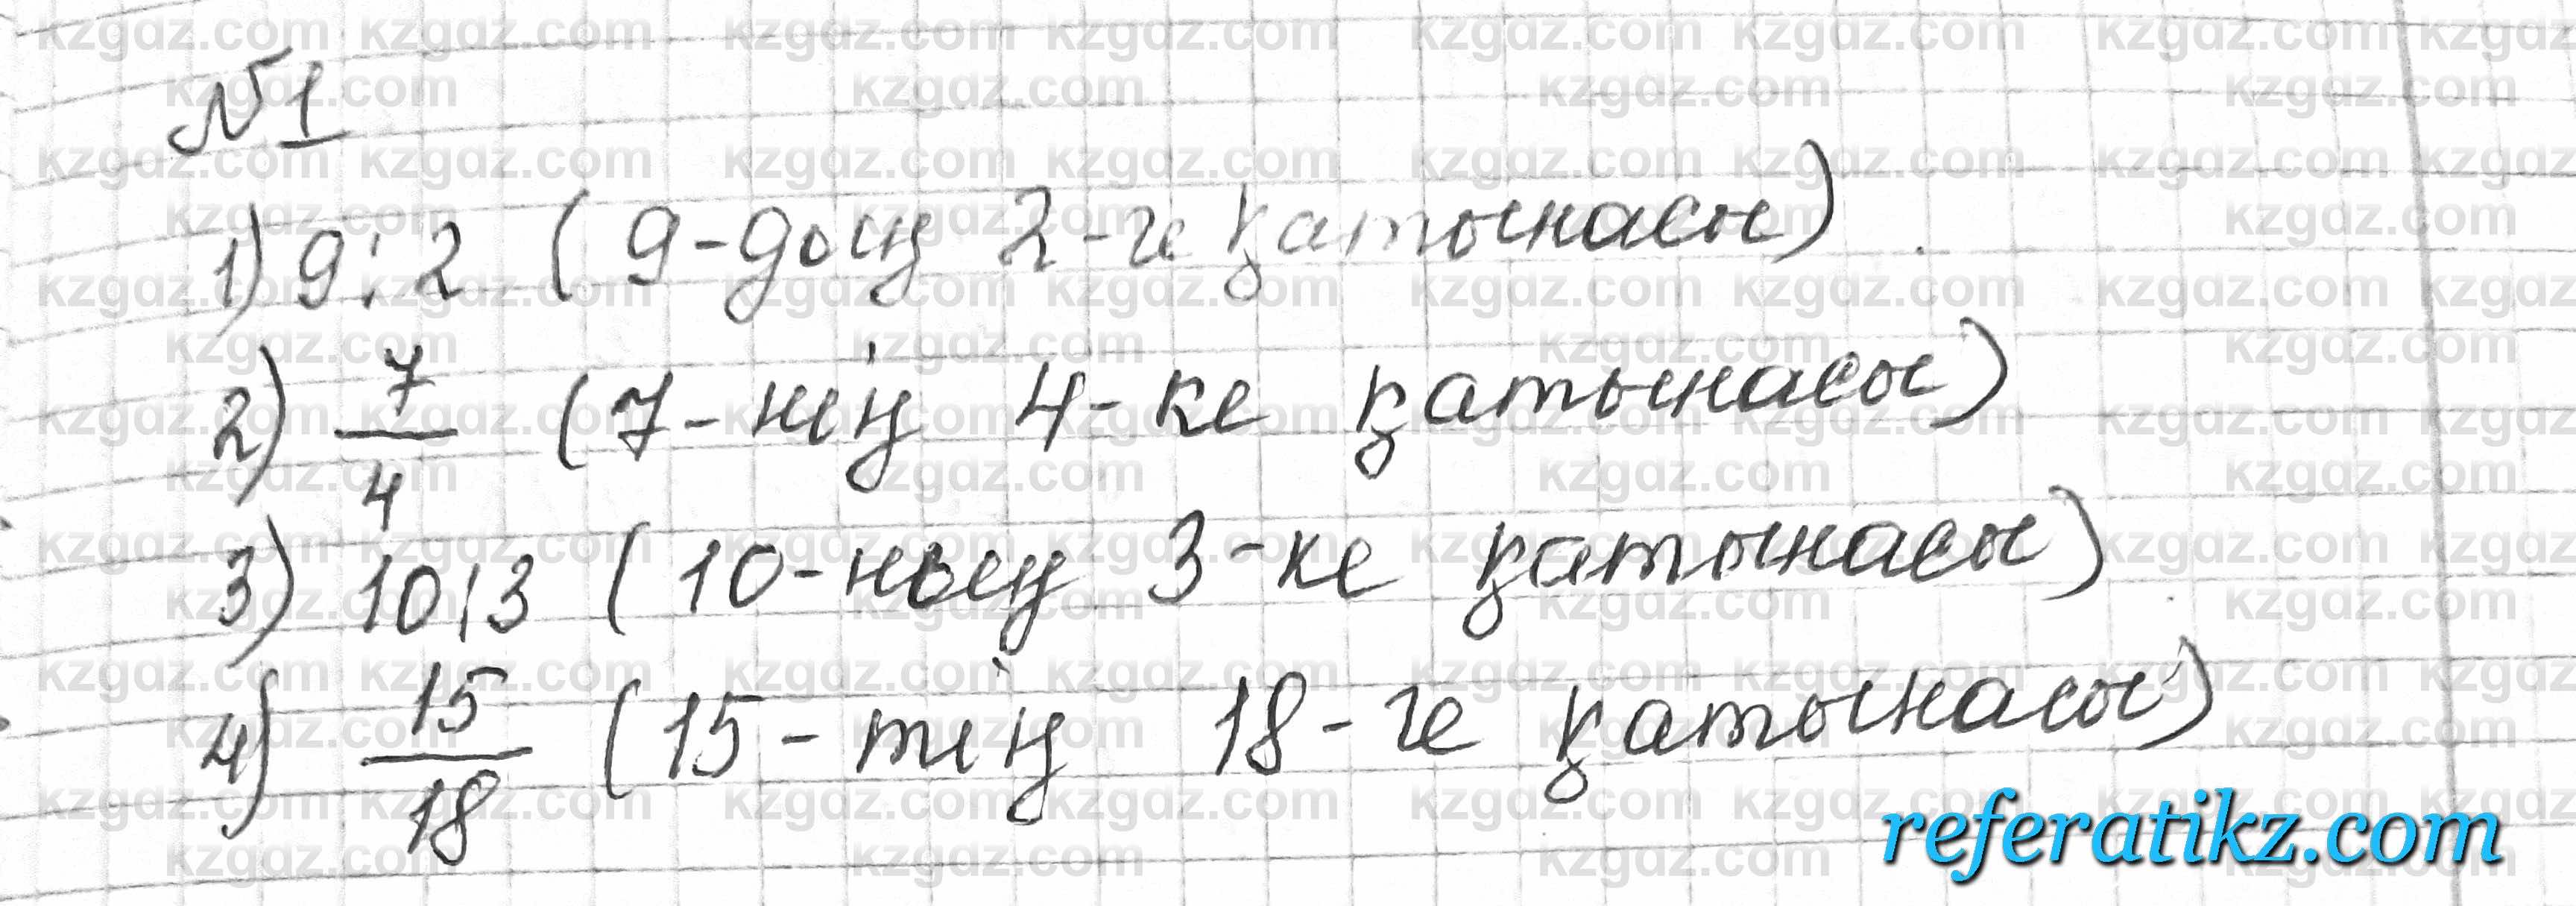 №1
1) 9:2 (9-дың 2-ге қатынасы)
2) 7/4 (7-нің 4-ке қатынасы)
3) 10:3 (10-ның 3-ке қатынасы)
4) 15/18 (15-тің 18-ге қатынасы)
referatikz.com